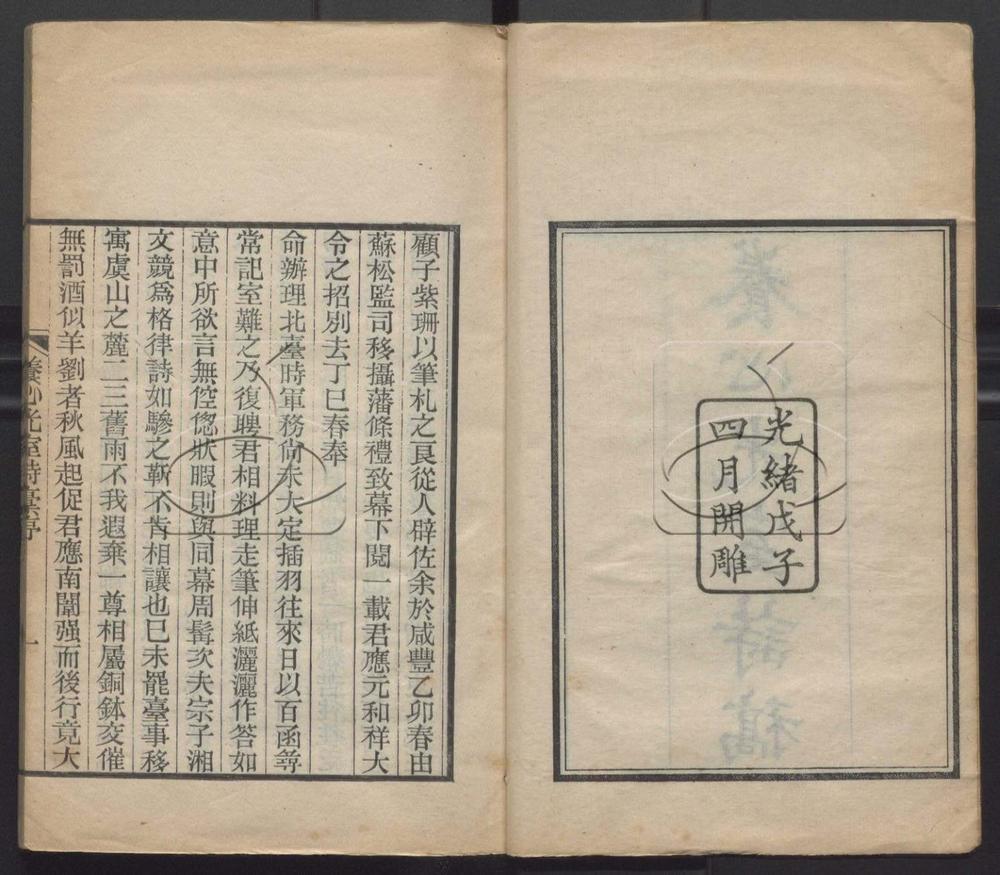 光緒戊子
四月開雕
顧子紫珊以筆札之良從人辟佐余於咸豐乙卯春由
蘇松監司移攝藩條禮致幕下閱一載君應元和祥大
令之招別去丁巳春奉
命辦理北臺時軍務尚未大定插羽往來日以百函尋
常記室難之乃復聘君相料理走筆伸紙灑灑作答如
意中所欲言無倥傯狀暇則與同幕周髯次夫宗子湘
文競爲格律詩如驂之靳不肯相讓也巳未罷臺事移
寓虞山之麓二三舊雨不我遐棄一尊相屬銅鉢交催
無罰酒似羊劉者秋風起促君應南闈强而後行竟大
養心光室詩稾序
一